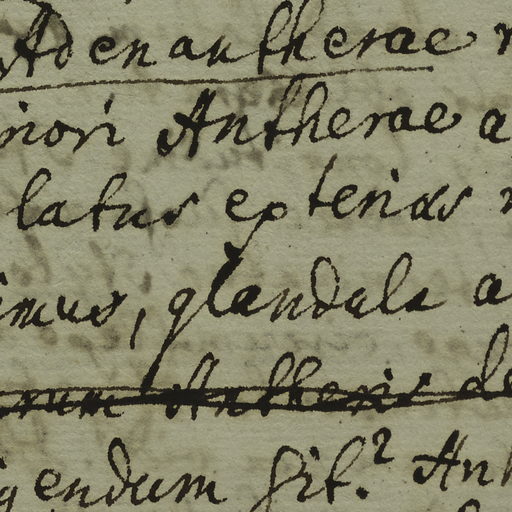 Adenantherae
nori Antherae a
latus exterius
imus, glandula a
rum Antheris de
gendum sit.? Anh